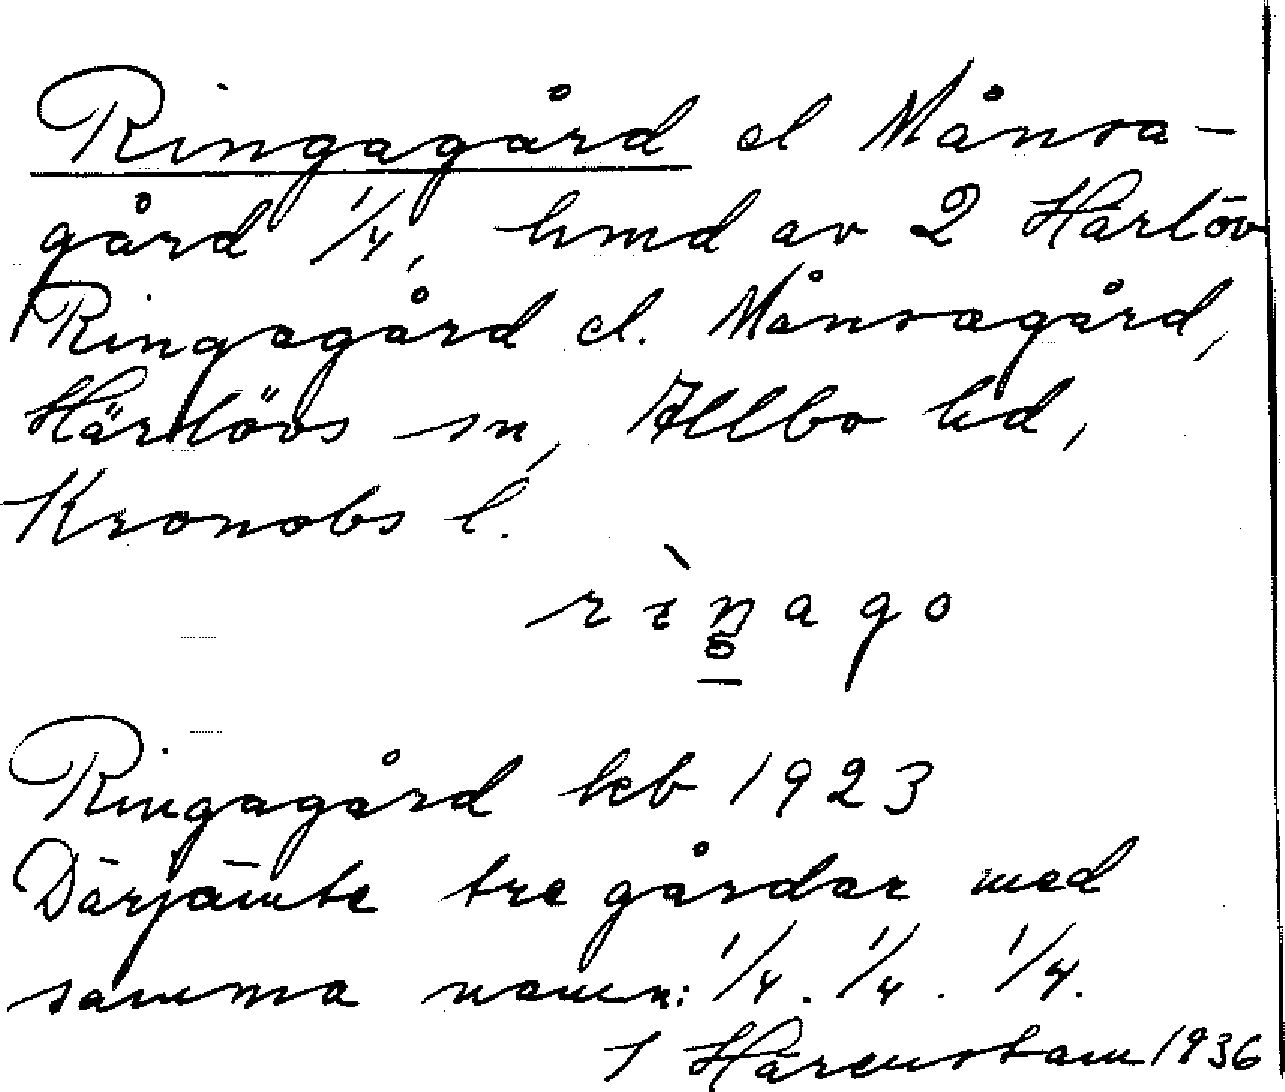 Ringagård el Månsa-
gård 1/4, hmd av 2 Härlöv
Ringagård el. Månsagård,
Härlövs sn, Allbo hd,
Kronobs l.
rìnago
Ringagård kb 1923
Därjämte tre gårdar med
samma namn: 1/4. 1/4. 1/4.
J Härenstam 1936